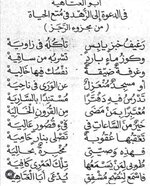 أبو العتاهية
في الدعوة إلى الزهد في متع الحياة
(من مجزوء الرجز)
رغيف خبز يابس تأكله في زاوية
وكوز ماء بارد تشربه من صافية
وغرفة ضيقة نفسك فيها خالية
أو مسجد بمعزل عن الورى في ناحية
تدرس فيه دفترا مستندا بسارية
معتبرا بمن مضى من القرون الخالية
خير من الساعات في فيء القصور العالية
تعقبها عقوبة تصلى بنار حامية
فهذه وصيتي مخبرة بحالية
طوبى لمن يسمعها تلك لعمري كافية
فاسمع لنصح مشفق يدعى أبا العتاهية